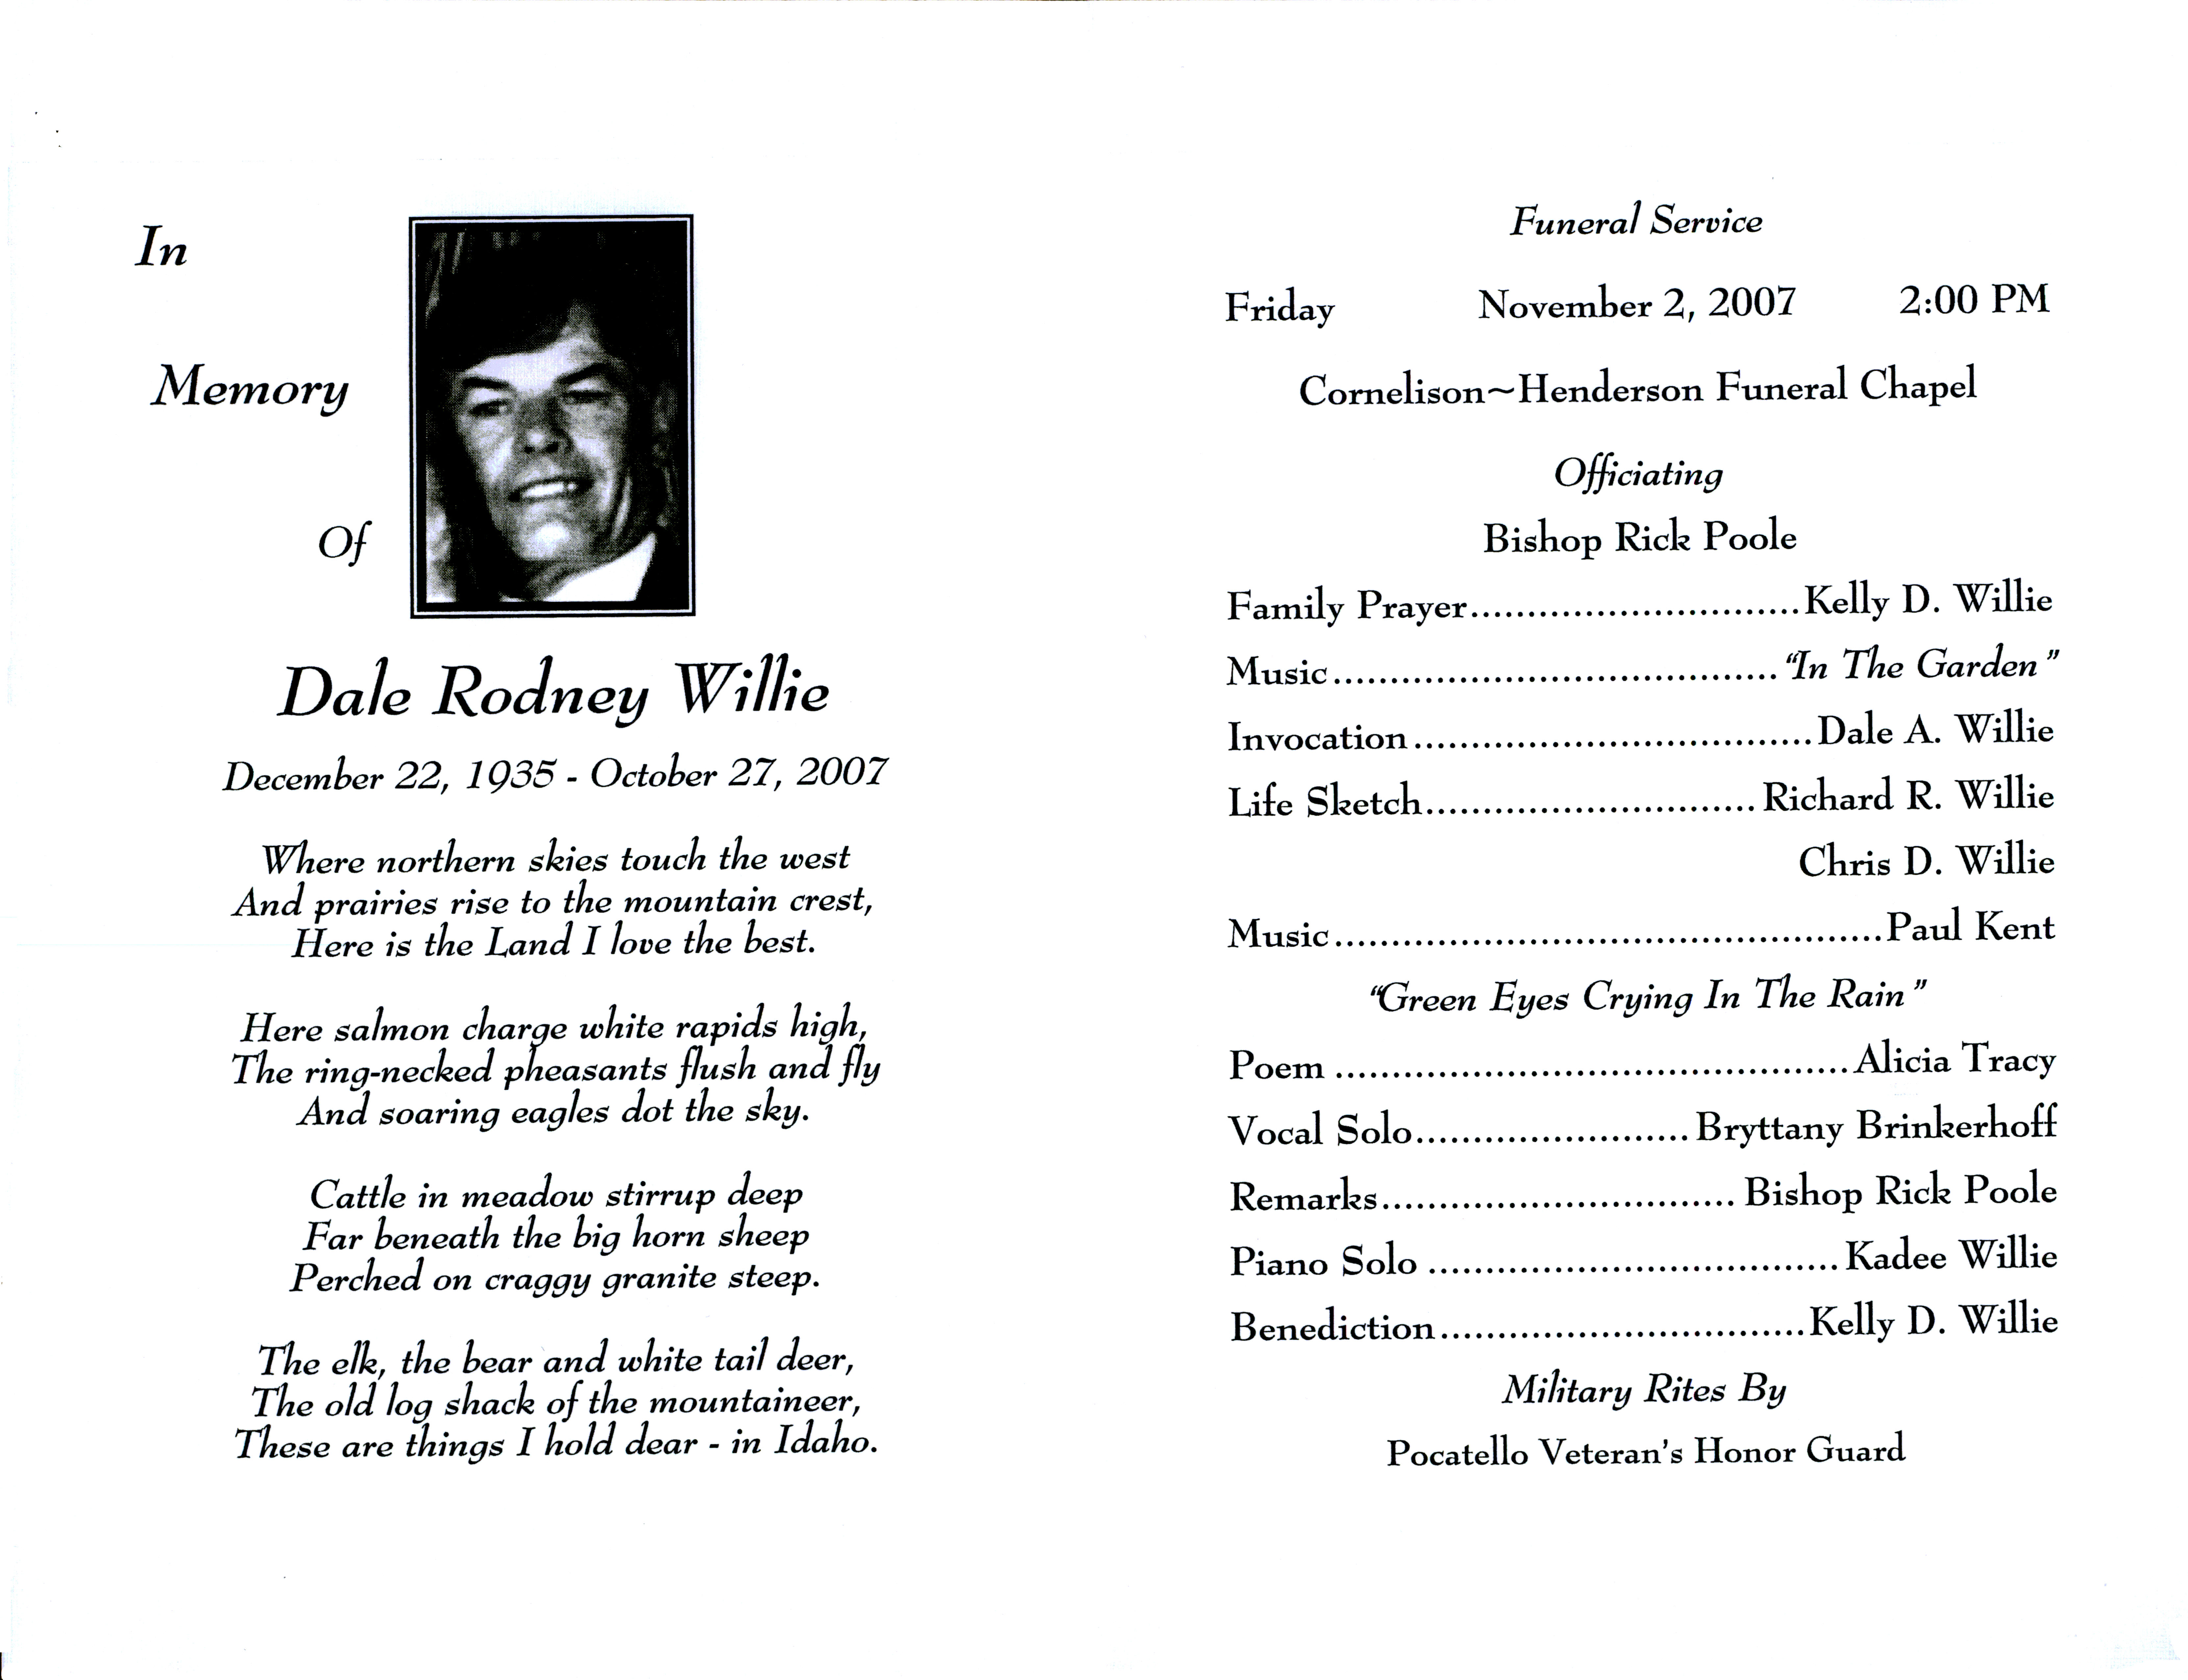 In
Memory
Of
Dale Rodney Willie
December 22, 1935 - October 27, 2007
Where northern skies touch the west
And prairies rise to the mountain crest,
Here is the Land I love the best.
Here salmon charge white rapids high,
The ring-necked pheasants flush and fly
And soaring eagles dot the sky.
Cattle in meadow stirrup deep
Far beneath the big horn sheep
Perched on craggy granite steep.
The elk, the bear and white tail deer,
The old log shack of the mountaineer,
These are things I hold dear - in Idaho.
Funeral Service
Friday November 2, 2007 2:00 PM
Cornelison~Henderson Funeral Chapel
Officiating
Bishop Rick Poole
Family Prayer.............................Kelly D. Willie
Music.......................................“In The Garden”
Invocation...................................Dale A. Willie
Life Sketch.............................Richard R. Willie
Chris D. Willie
Music................................................Paul Kent
“Green Eyes Crying In The Rain”
Poem .............................................Alicia Tracy
Vocal Solo........................Bryttany Brinkerhoff
Remarks............................... Bishop Rick Poole
Piano Solo ....................................Kadee Willie
Benediction................................Kelly D. Willie
Military Rites By
Pocatello Veteran's Honor Guard